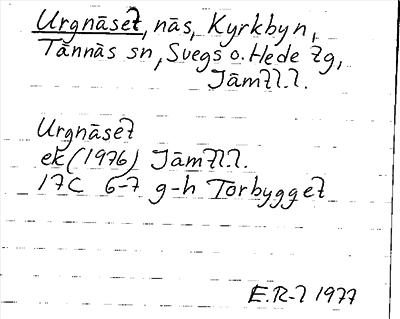 Urgnäset, näs, Kyrkbyn,
Tännäs sn, Svegs o. Hede tg,
Jämtl.l.
Urgnäset
ek (1976) Jämtl.l.
17C 6-7 g-h Torbygget
E.R-l 1977